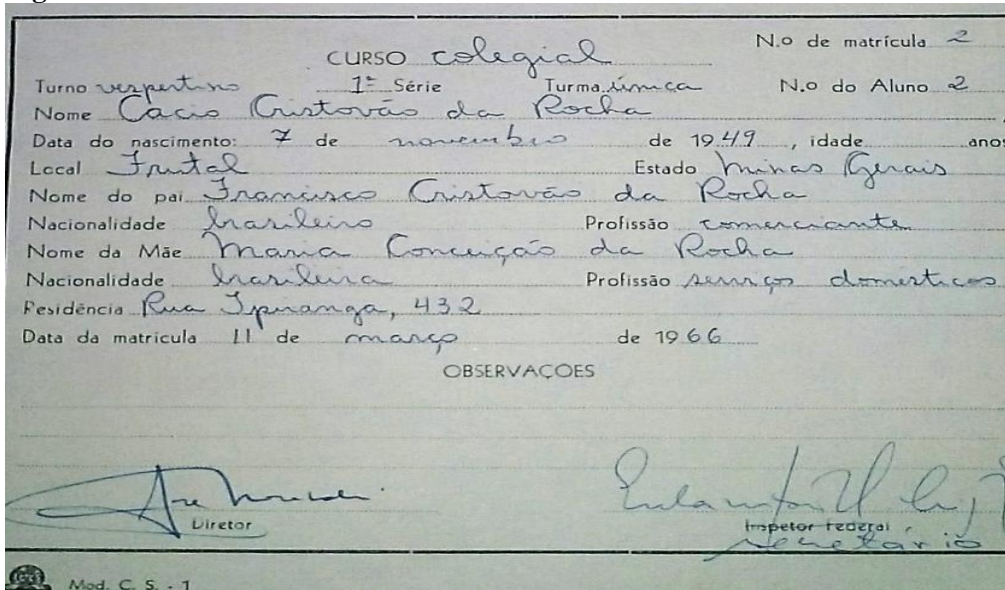 CURSO colegial N.o de matrícula 2
Turno vespertino 1ª Série Turma única N.o do Aluno 2
Nome Cacio Cristovão da Rocha
Data do nascimento: 7 de novembro de 1949, idade anos
Local Frutal Estado Minas Gerais
Nome do pai Francisco Cristovão da Rocha
Nacionalidade brasileiro Profissão comerciante
Nome da Mãe Maria Conceição da Rocha
Nacionalidade brasileira Profissão serviços domesticos
Residência Rua Ipiranga, 432
Data da matricula 11 de março de 1966
OBSERVAÇOES
Diretor Inspetor Federal
secretário
Mod. C. S. - 1